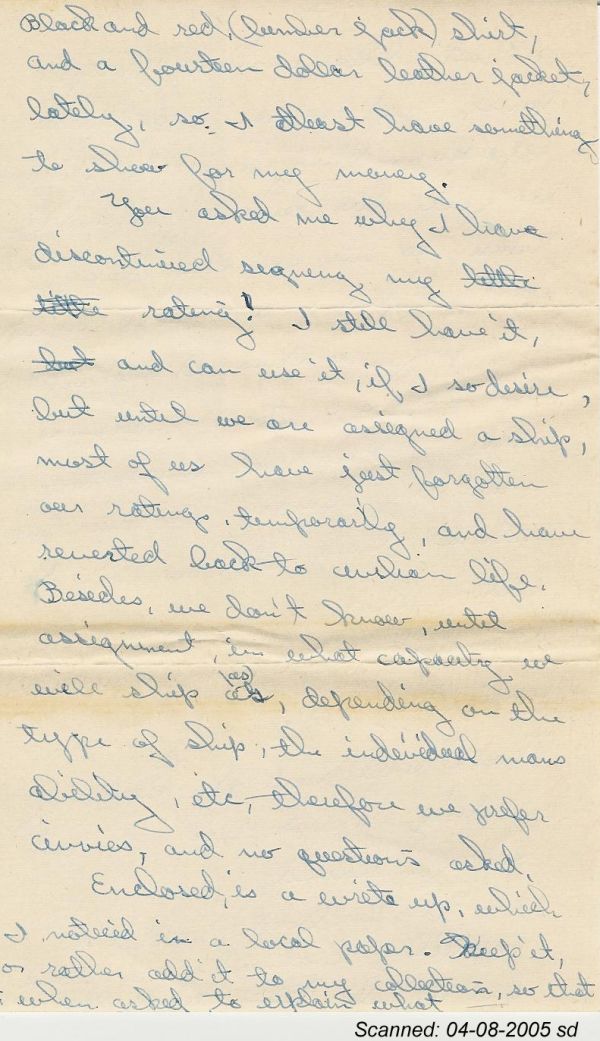 Black and red, (limber jack) shirt,
and a fourteen dollar leather jacket,
lately, so I atleast have something
to show for my money.
You asked me why I have
discontinued signing my little
little rating! I still have it,
but and can use it, if I so desire,
but until we are assigned a ship,
most of us have just forgotten
our ratings, temporarily, and have
reverted back to civilian life.
Besides, we don't know, until
assignment, in what capacity we
will ship as (as), depending on the
type of ship, the individual mans
ability, etc, therefore we prefer
civvies, and no questions asked.
Enclosed, is a write up, which
I noticed in a local paper. Keep it,
or rather add it to my collection, so that
when asked to explain what
Scanned: 04-08-2005 sd